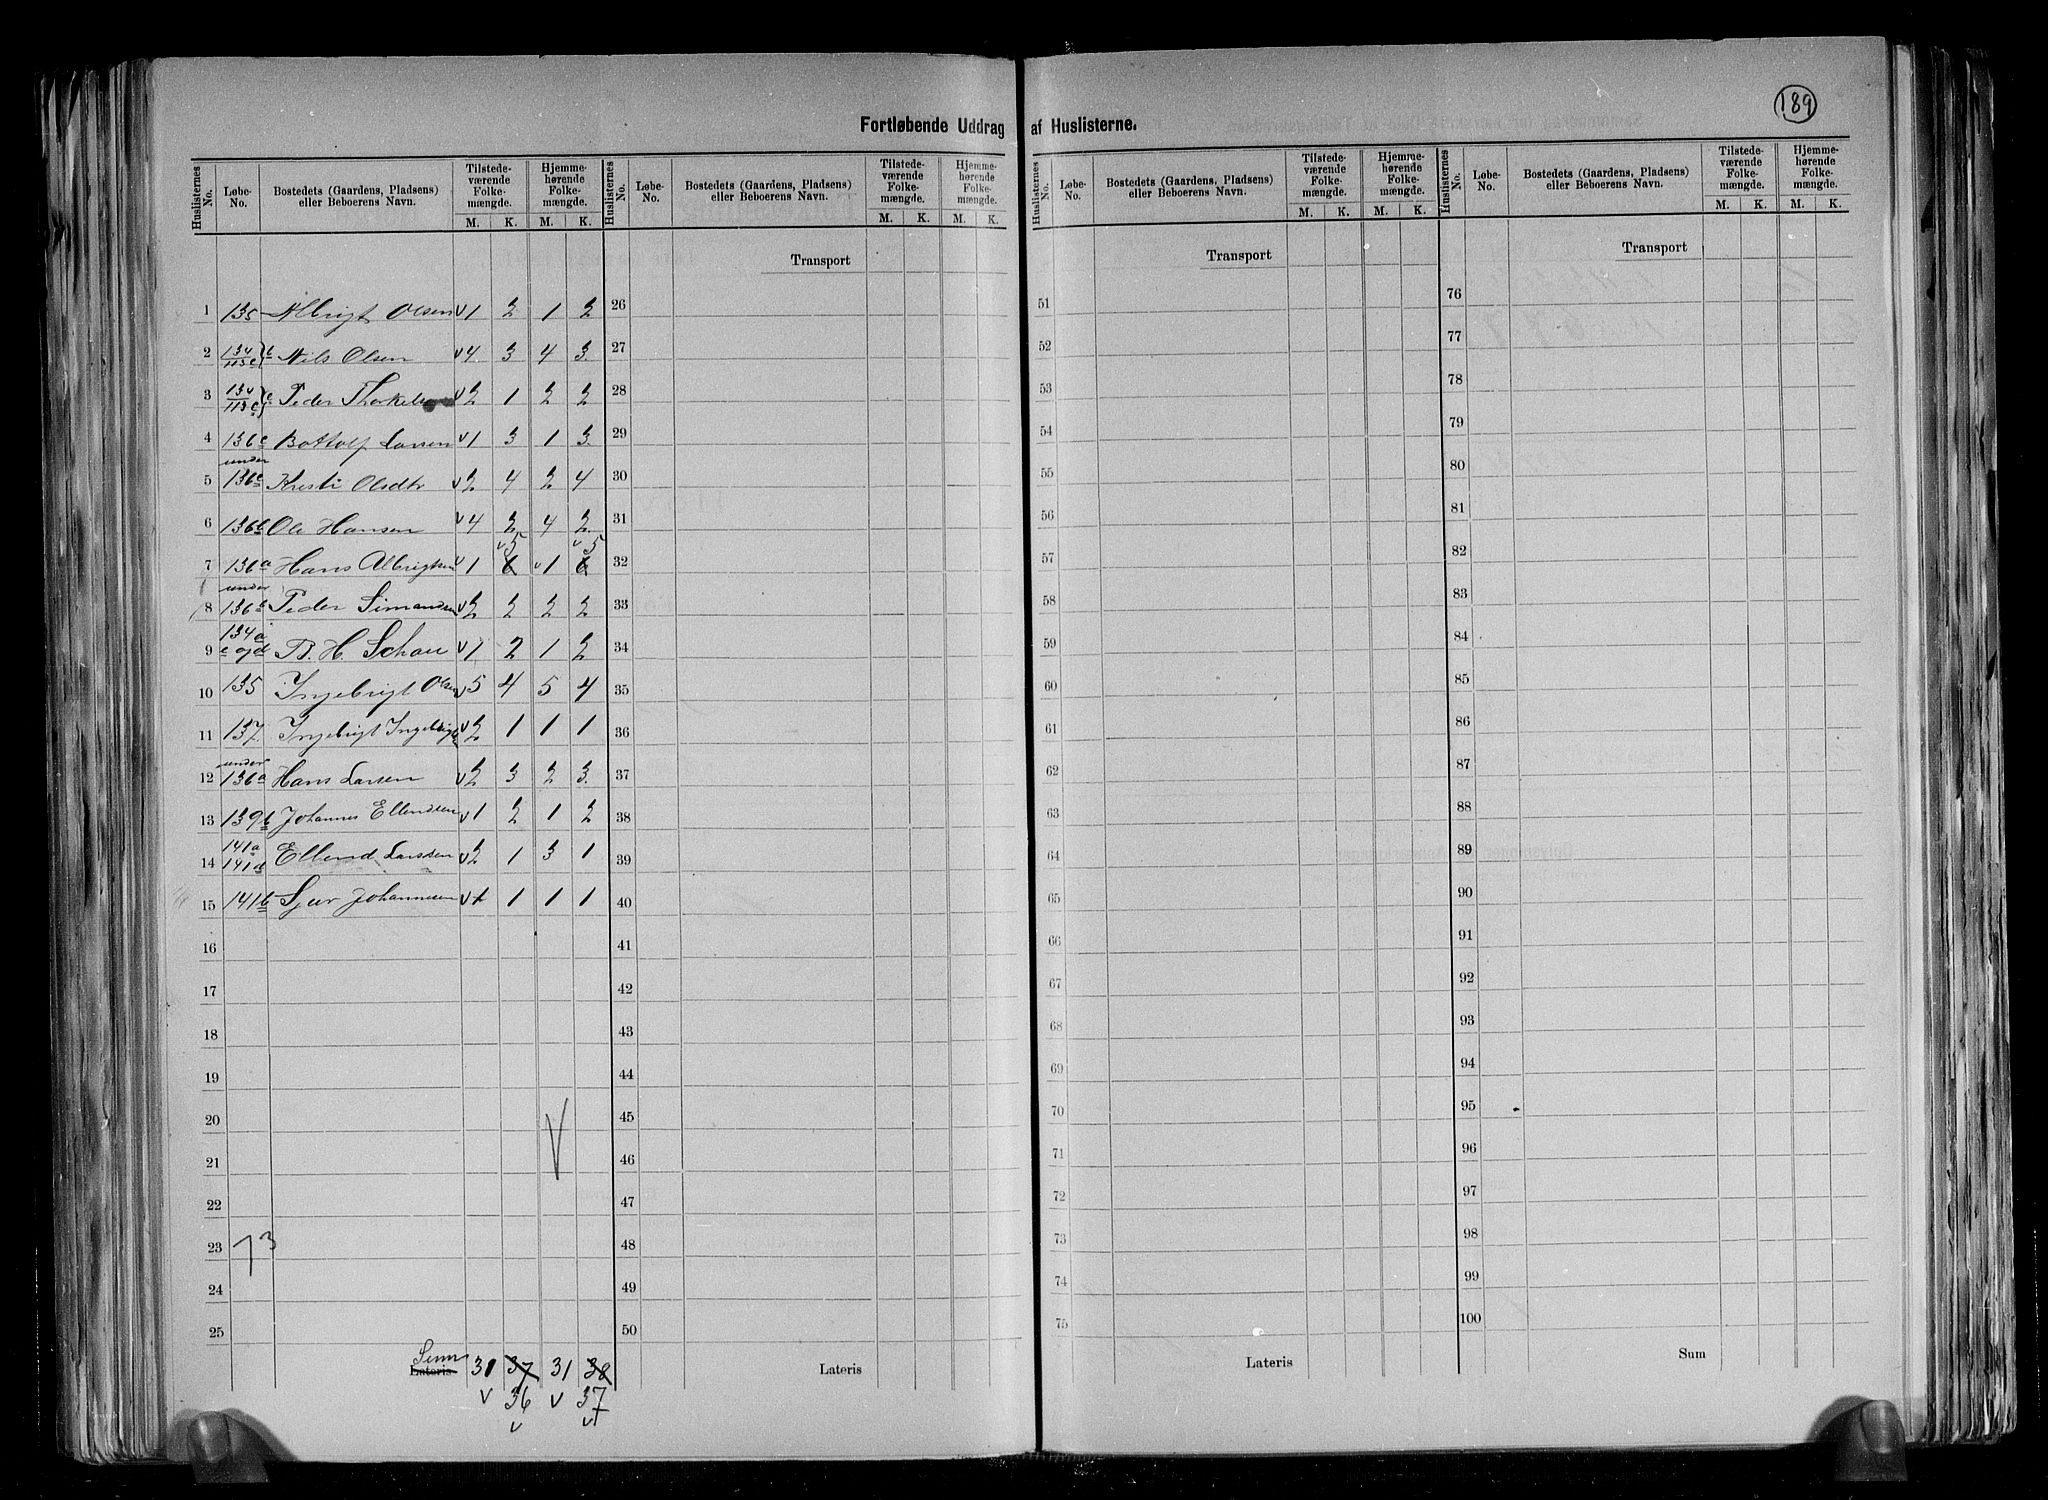 189
Fortløbende Uddrag af Huslisterne.
Huslisternes No. Løbe-No. Bostedets (Gaardens, Pladsens) eller Beboerens Navn. Tilstedeværende Folkemængde. M. K. Hjemmehørende Folkemængde. M. K.
Huslisternes No. Løbe-No. Bostedets (Gaardens, Pladsens) eller Beboerens Navn. Tilstedeværende Folkemængde. M. K. Hjemmehørende Folkemængde. M. K.
Huslisternes No. Løbe-No. Bostedets (Gaardens, Pladsens) eller Beboerens Navn. Tilstedeværende Folkemængde. M. K. Hjemmehørende Folkemængde. M. K.
Huslisternes No. Løbe-No. Bostedets (Gaardens, Pladsens) eller Beboerens Navn. Tilstedeværende Folkemængde. M. K. Hjemmehørende Folkemængde. M. K.
1 135 Albrigt Olsen v 1 2 1 2
2 134/113c}b Nils Olsen v 4 3 4 3
3 134/113c}c Peder Thorkels v 2 1 2 2
4 136c Bottolf Larsen v 1 3 1 3
5 under 136c Kresti Olsdtr v 2 4 2 4
6 136b Ole Hansen v 4 2 4 2
7 136a Hans Albrigtsen v 1 6 v 5 v 1 6 v 5
8 under 136b Peder Simonsen v 2 2 2 2
9 134a c og d B. H. Schau v 1 2 1 2
10 135 Ingebrigt Olsen v 5 4 5 4
11 137. Ingebrigt Ingebrigts v 2 1 1 1
12 under 136a Hans Larsen v 2 3 2 3
13 139b Johannes Ellendsen v 1 2 1 2
14 141a 141d Ellend Larssen v 2 1 3 1
15 141b Sjur Johannesen v 1 1 1 1
16
17
18
19
20
21
22
23 73
24
25
Lateris Sum 31 37 31 38
v 36 v 37
v v
Transport
26
27
28
29
30
31
32
33
34
35
36
37
38
39
40
41
42
43
44
45
46
47
48
49
50
Lateris
Transport
51
52
53
54
55
56
57
58
59
60
61
62
63
64
65
66
67
68
69
70
71
72
73
74
75
Lateris
Transport
76
77
78
79
80
81
82
83
84
85
86
87
88
89
90
91
92
93
94
95
96
97
98
99
100
Sum